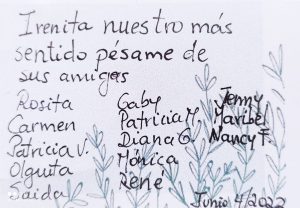 Irenita nuestro más
sentido pésame de
sus amigas
Rosita Gaby Jenny
Carmen Patricia M. Maribel
Patricia V. Diana G. Nancy F.
Olguita Mónica
Saida René
Junio 4/2022